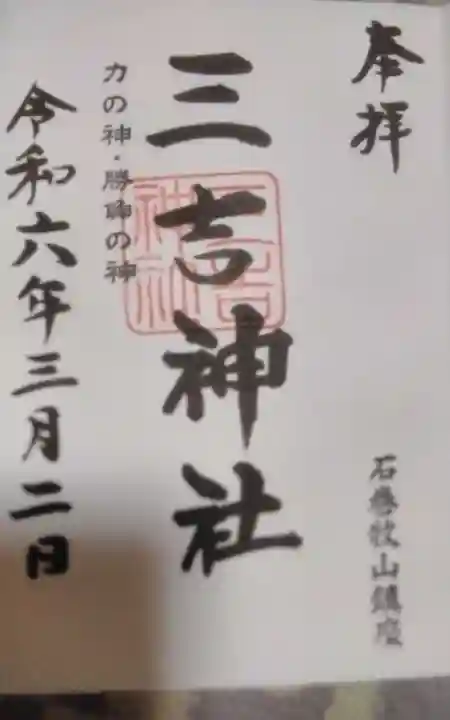 奉拝
石巻牧山鎮座
三吉神社
三吉神社
力の神・勝負の神
令和六年三月二日